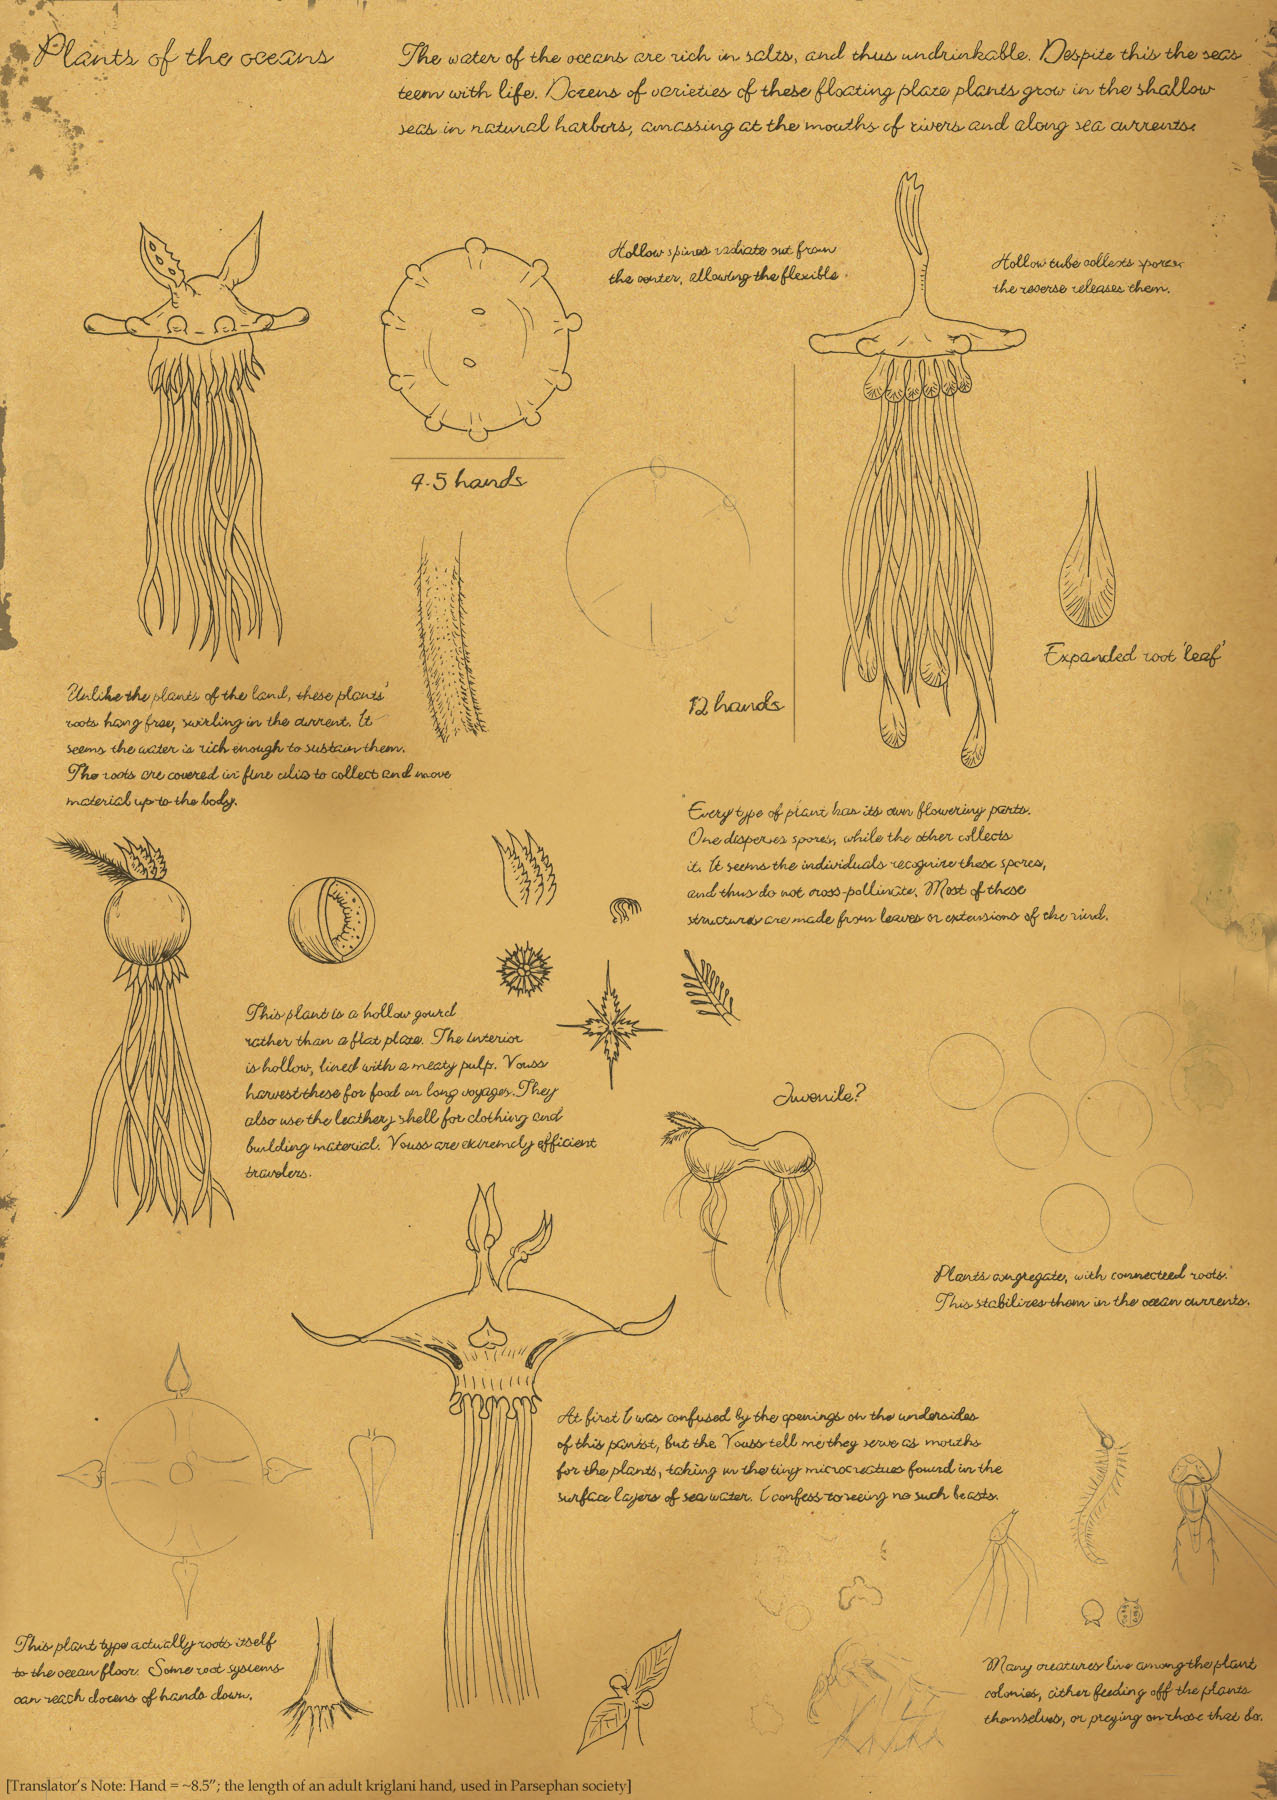 Plants of the oceans
The water of the oceans are rich in salts, and thus undrinkable. Despite this the seas
teem with life. Dozens of varieties of these floating plate plants grow in the shallow
seas in natural harbors, amassing at the mouths of rivers and along sea currents.
Hollow spines radiate out from
the center, allowing the flexible.
Hollow tube collects spores,
the reverse releases them.
4-5 hands
12 hands
Expanded root 'leaf'
Unlike the plants of the land, these plants'
roots hang free, swirling in the current. It
seems the water is rich enough to sustain them.
The roots are covered in fine cilia to collect and move
material up to the body.
Every type of plant has its own flowering parts.
One disperses spores, while the other collects
it. It seems the individuals recognize these spores,
and thus do not cross-pollinate. Most of these
structures are made from leaves or extensions of the rind.
This plant is a hollow gourd
rather than a flat plate. The interior
is hollow, lined with a meaty pulp. Vouss
harvest these for food on long voyages. They
also use the leathery shell for clothing and
building material. Vouss are extremely efficient
travelers.
Juvenile?
Plants congregate, with connecteed roots.
This stabilizes them in the ocean currents.
At first I was confused by the openings on the undersides
of this , but the Vouss tell me they serve as mouths
for the plants, taking in the tiny microcreatues found in the
surface layers of sea water. I confess to seeing no such beasts.
This plant type actually roots itself
to the ocean floor. Some root systems
can reach dozens of hands down.
Many creatures live among the plant
colonies, either feeding off the plants
themselves, or preying on those that do.
[Translator's Note: Hand = ~8.5"; the length of an adult kriglani hand, used in Parsephan society]